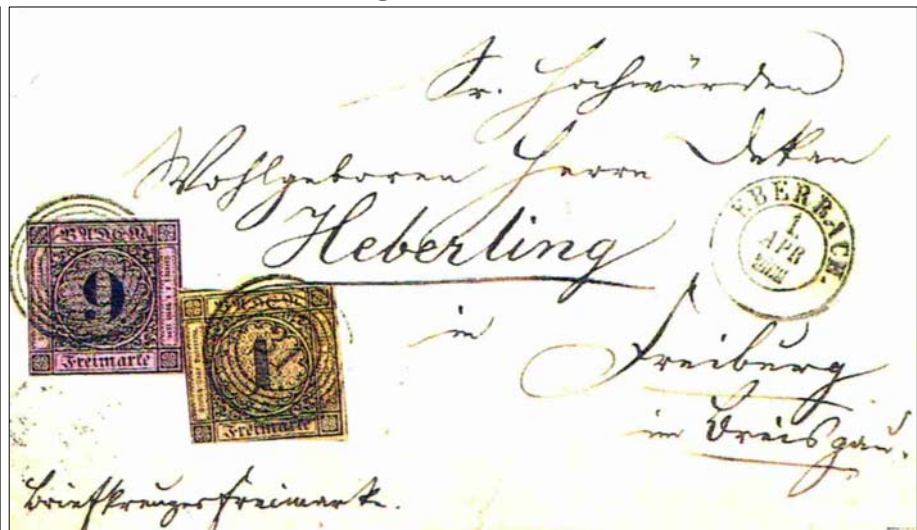 Sr. Hochwürden
Wohlgeboren Herrn Dekan
Heberling
in Freiburg
im Breisgau.
EBERBACH.
1
APR
BADEN.
9
Freimarke
BADEN
1
Freimarke